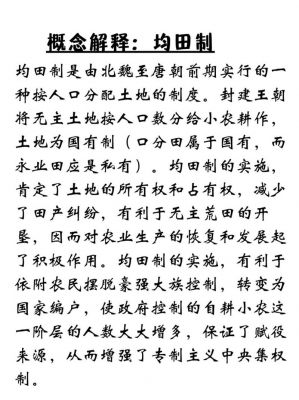 概念解释：均田制
均田制是由北魏至唐朝前期实行的一
种按人口分配土地的制度。封建王朝
将无主土地按人口数分给小农耕作，
土地为国有制（口分田属于国有，而
永业田应是私有）。均田制的实施，
肯定了土地的所有权和占有权，减少
了田产纠纷，有利于无主荒田的开
垦，因而对农业生产的恢复和发展起
了积极作用。均田制的实施，有利于
依附农民摆脱豪强大族控制，转变为
国家编户，使政府控制的自耕小农这
一阶层的人数大大增多，保证了赋役
来源，从而增强了专制主义中央集权
制。